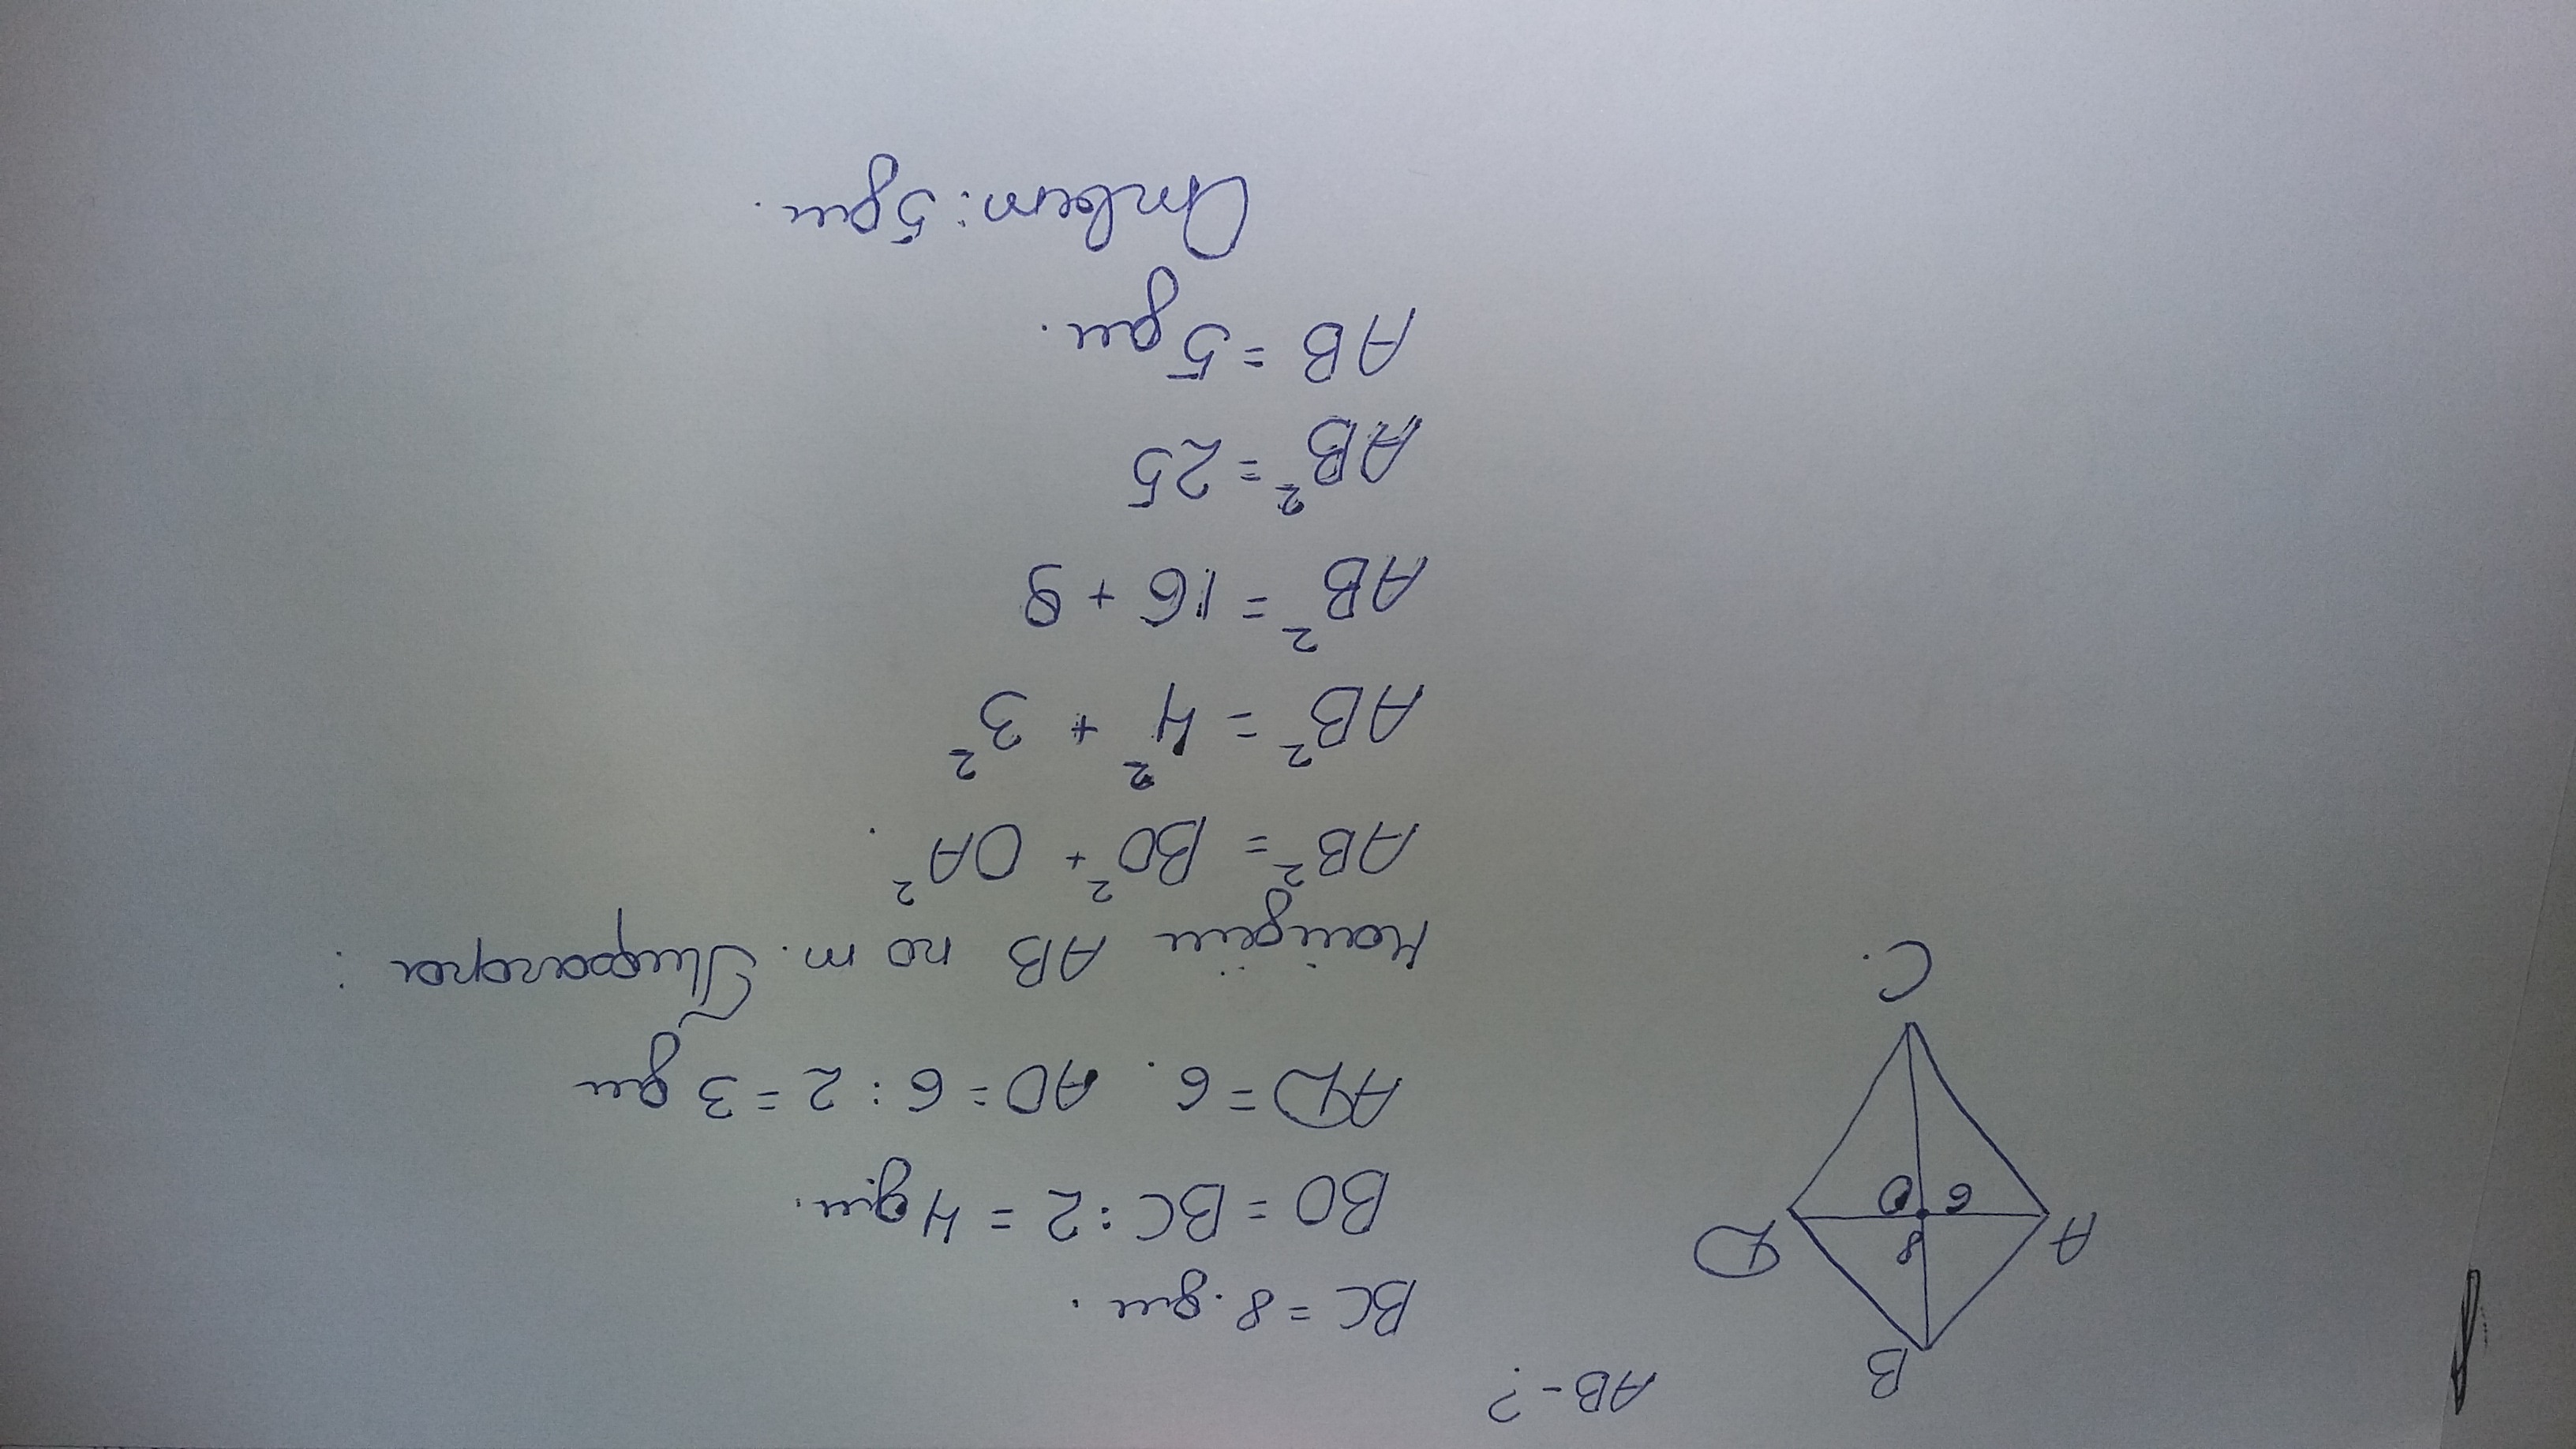 AB - ?
B
A
8
D
6
O
C.
BC = 8 дм.
BO = BC : 2 = 4 дм.
AD = 6. AO = 6 : 2 = 3 дм
Найдём AB по т. Пифагора:
AB² = BO² + OA².
AB² = 4² + 3²
AB² = 16 + 9
AB² = 25
AB = 5 дм.
Ответ: 5 дм.